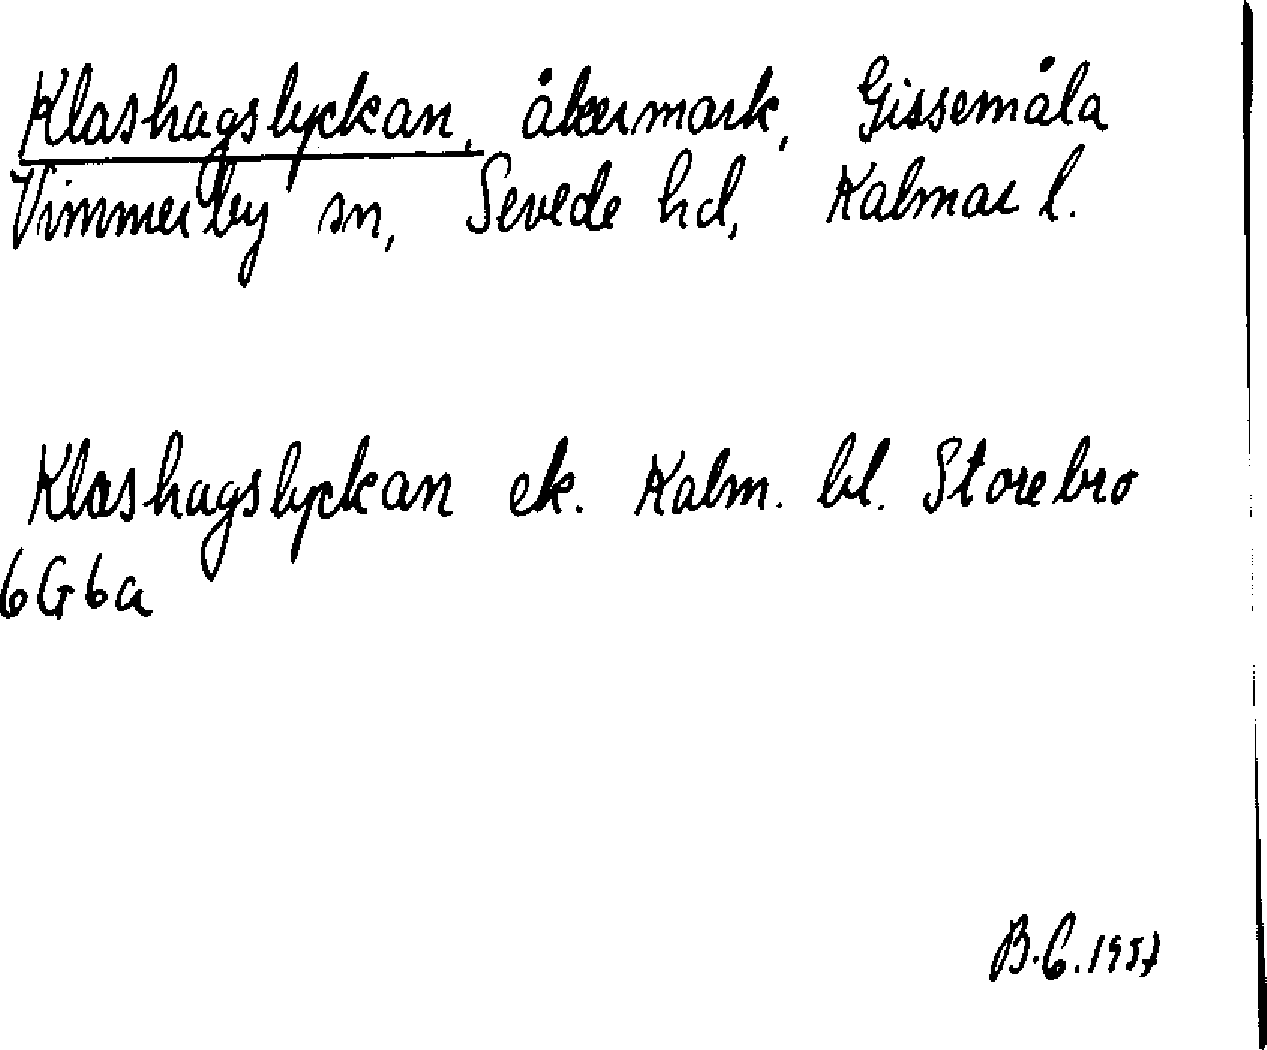 Klashagslyckan, åkermark, Gissemåla
Vimmerby sn, Sevede hd, Kalmar l.
Klashagslyckan ek. Kalm. bl. Storebro
6G6a
B.G.1957